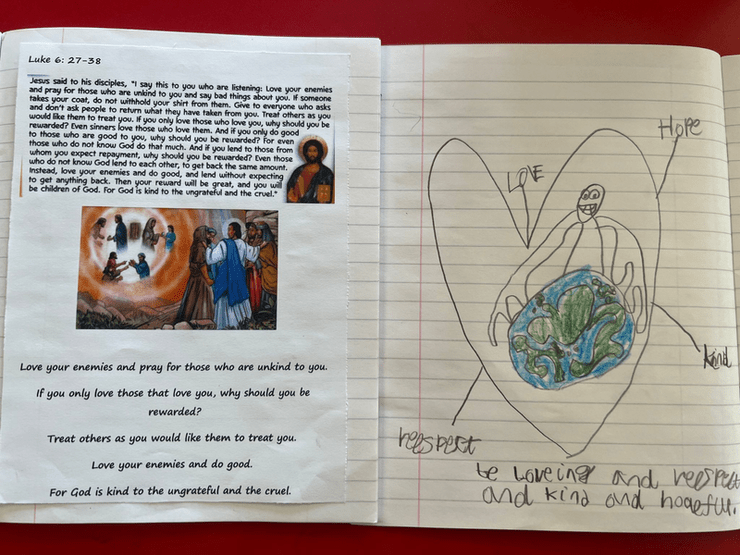 Luke 6: 27-38
Jesus said to his disciples, "I say this to you who are listening: Love your enemies
and pray for those who are unkind to you and say bad things about you. If someone
takes your coat, do not withhold your shirt from them. Give to everyone who asks
and don't ask people to return what they have taken from you. Treat others as you
would like them to treat you. If you only love those who love you, why should you be
rewarded? Even sinners love those who love them. And if you only do good
to those who are good to you, why should you be rewarded? For even
those who do not know God do that much. And if you lend to those from
whom you expect repayment, why should you be rewarded? Even those
who do not know God lend to each other, to get back the same amount.
Instead, love your enemies and do good, and lend without expecting
to get anything back. Then your reward will be great, and you will
be children of God. For God is kind to the ungrateful and the cruel."
Love your enemies and pray for those who are unkind to you.
If you only love those that love you, why should you be
rewarded?
Treat others as you would like them to treat you.
Love your enemies and do good.
For God is kind to the ungrateful and the cruel.
Hope
LOVE
kind
reespect
be loveing and reespect
and kind and hopefull.